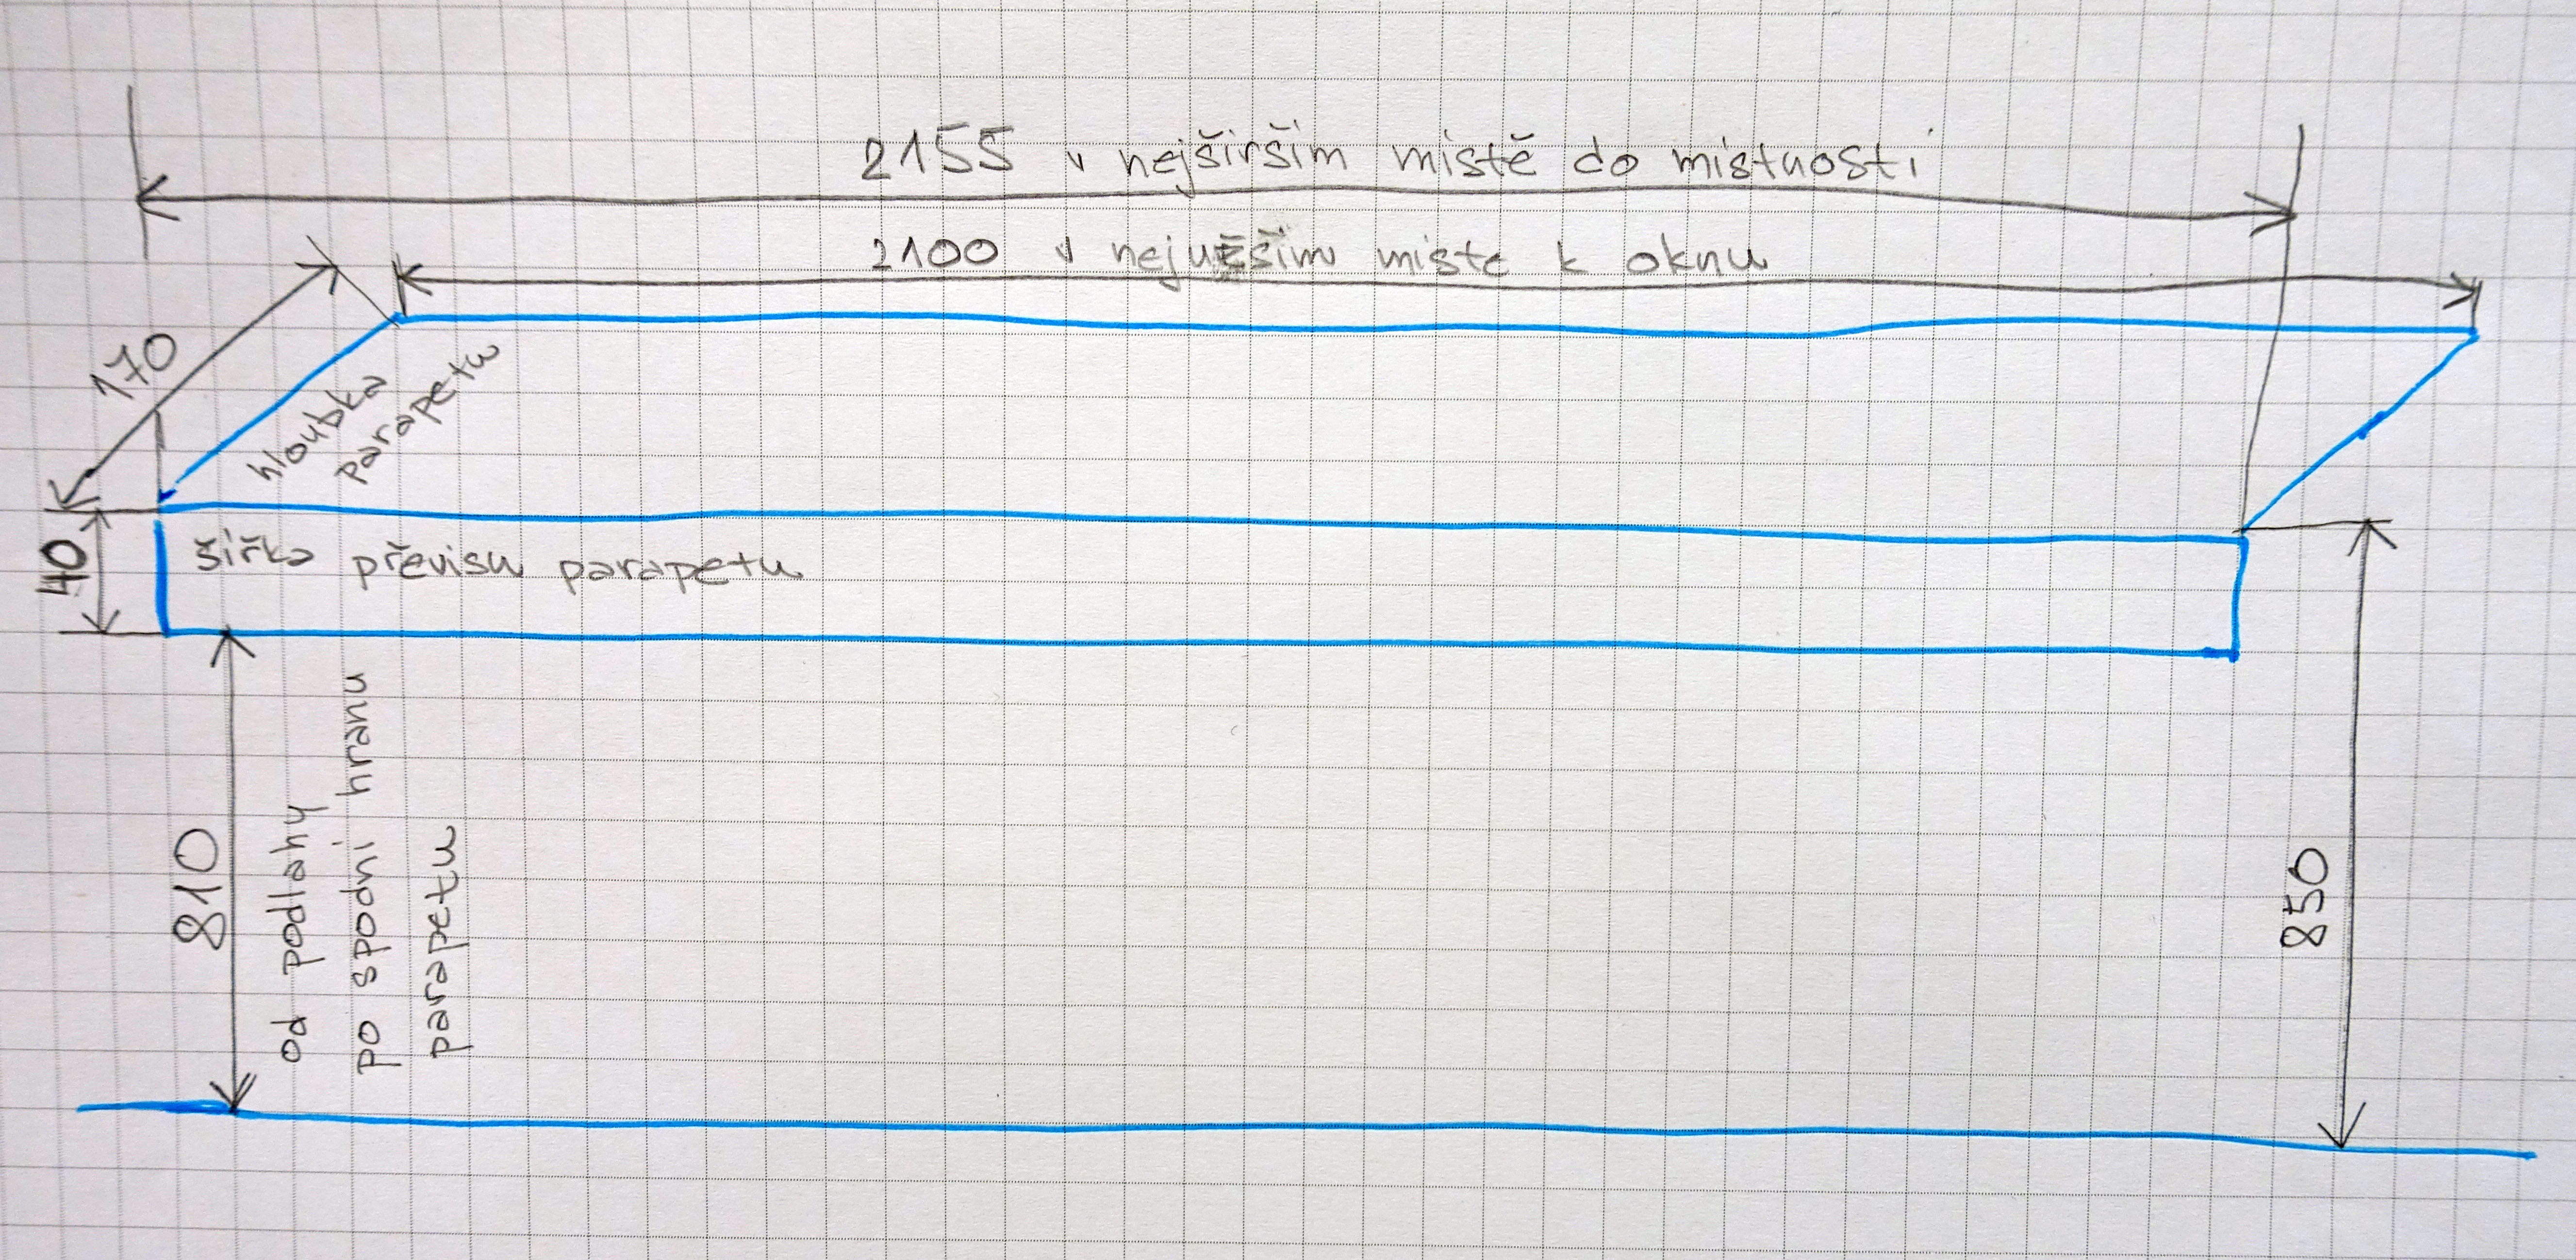 2155 v nejširším místě do místnosti
2100 v nejužším miste k oknu
170
hloubka
parapetu
40
šířka převisu parapetu
810
od podlahy
po spodní hranu
parapetu
850